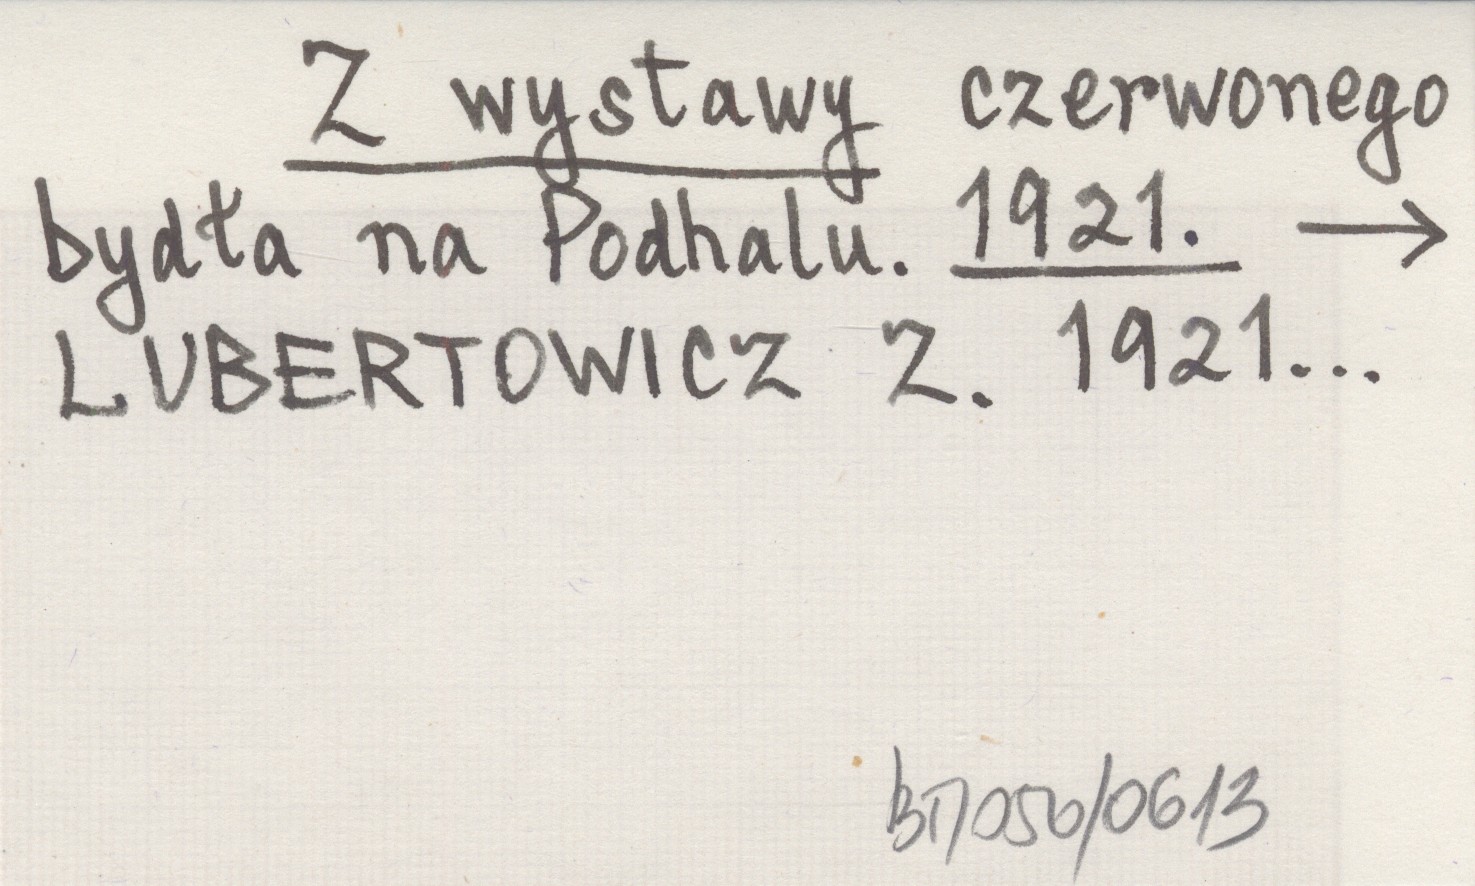 Z wystawy czerwonego
bydła na Podhalu. 1921. →
LUBERTOWICZ Z. 1921...
BT/050/0613